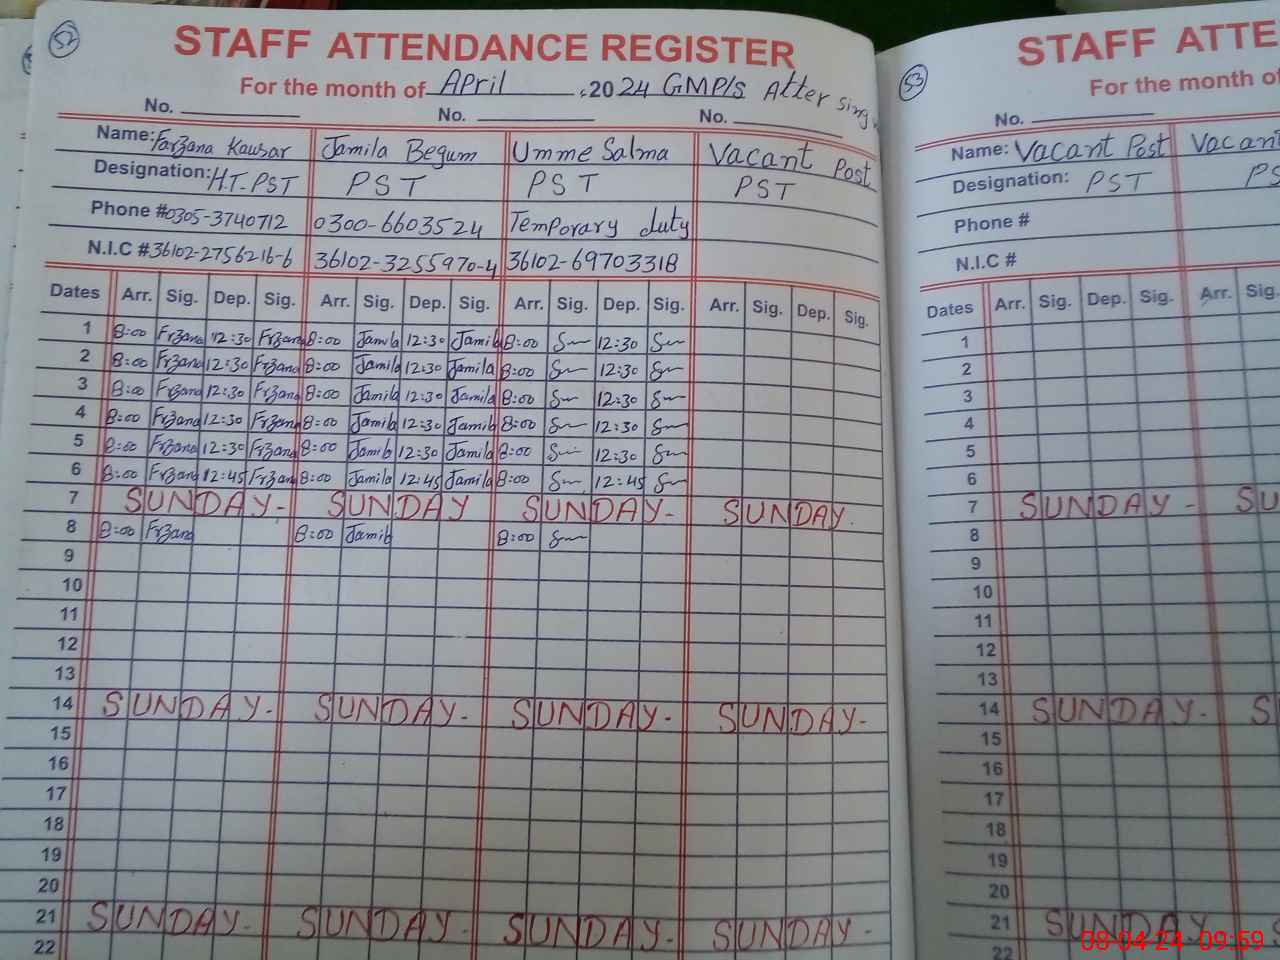 52
STAFF ATTENDANCE REGISTER
For the month of April ,2024 GMP/s Atter sing
No. No. No.
Name: Farzana Kausar Jamila Begum Umme Salma Vacant Post
Designation: H.T-PST PST PST PST
Phone # 0305-3740712 0300-6603524 Temporary duty
N.I.C # 36102-2756216-6 36102-3255970-4 36102-69703318
Dates Arr. Sig. Dep. Sig. Arr. Sig. Dep. Sig. Arr. Sig. Dep. Sig. Arr. Sig. Dep. Sig.
1 8:00 Frzana 12:30 Frzana 8:00 Jamila 12:30 Jamila 8:00 12:30
2 8:00 Frzana 12:30 Frzana 8:00 Jamila 12:30 Jamila 8:00 12:30
3 8:00 Frzana 12:30 Frzana 8:00 Jamila 12:30 Jamila 8:00 12:30
4 8:00 Frzana 12:30 Frzana 8:00 Jamila 12:30 Jamila 8:00 12:30
5 8:00 Frzana 12:30 Frzana 8:00 Jamila 12:30 Jamila 8:00 12:30
6 8:00 Frzana 12:45 Frzana 8:00 Jamila 12:45 Jamila 8:00 12:45
7 SUNDAY- SUNDAY SUNDAY- SUNDAY.
8 8:00 Frzana 8:00 Jamila 8:00
9
10
11
12
13
14 SUNDAY- SUNDAY- SUNDAY- SUNDAY-
15
16
17
18
19
20
21 SUNDAY- SUNDAY- SUNDAY- SUNDAY-
22
53
STAFF ATTE
For the month of
No.
Name: Vacant Post Vacan
Designation: PST PS
Phone #
N.I.C #
Dates Arr. Sig. Dep. Sig. Arr. Sig.
1
2
3
4
5
6
7 SUNDAY- SU
8
9
10
11
12
13
14 SUNDAY- S
15
16
17
18
19
20
21 SUNDAY-
22
08-04-24 09:59